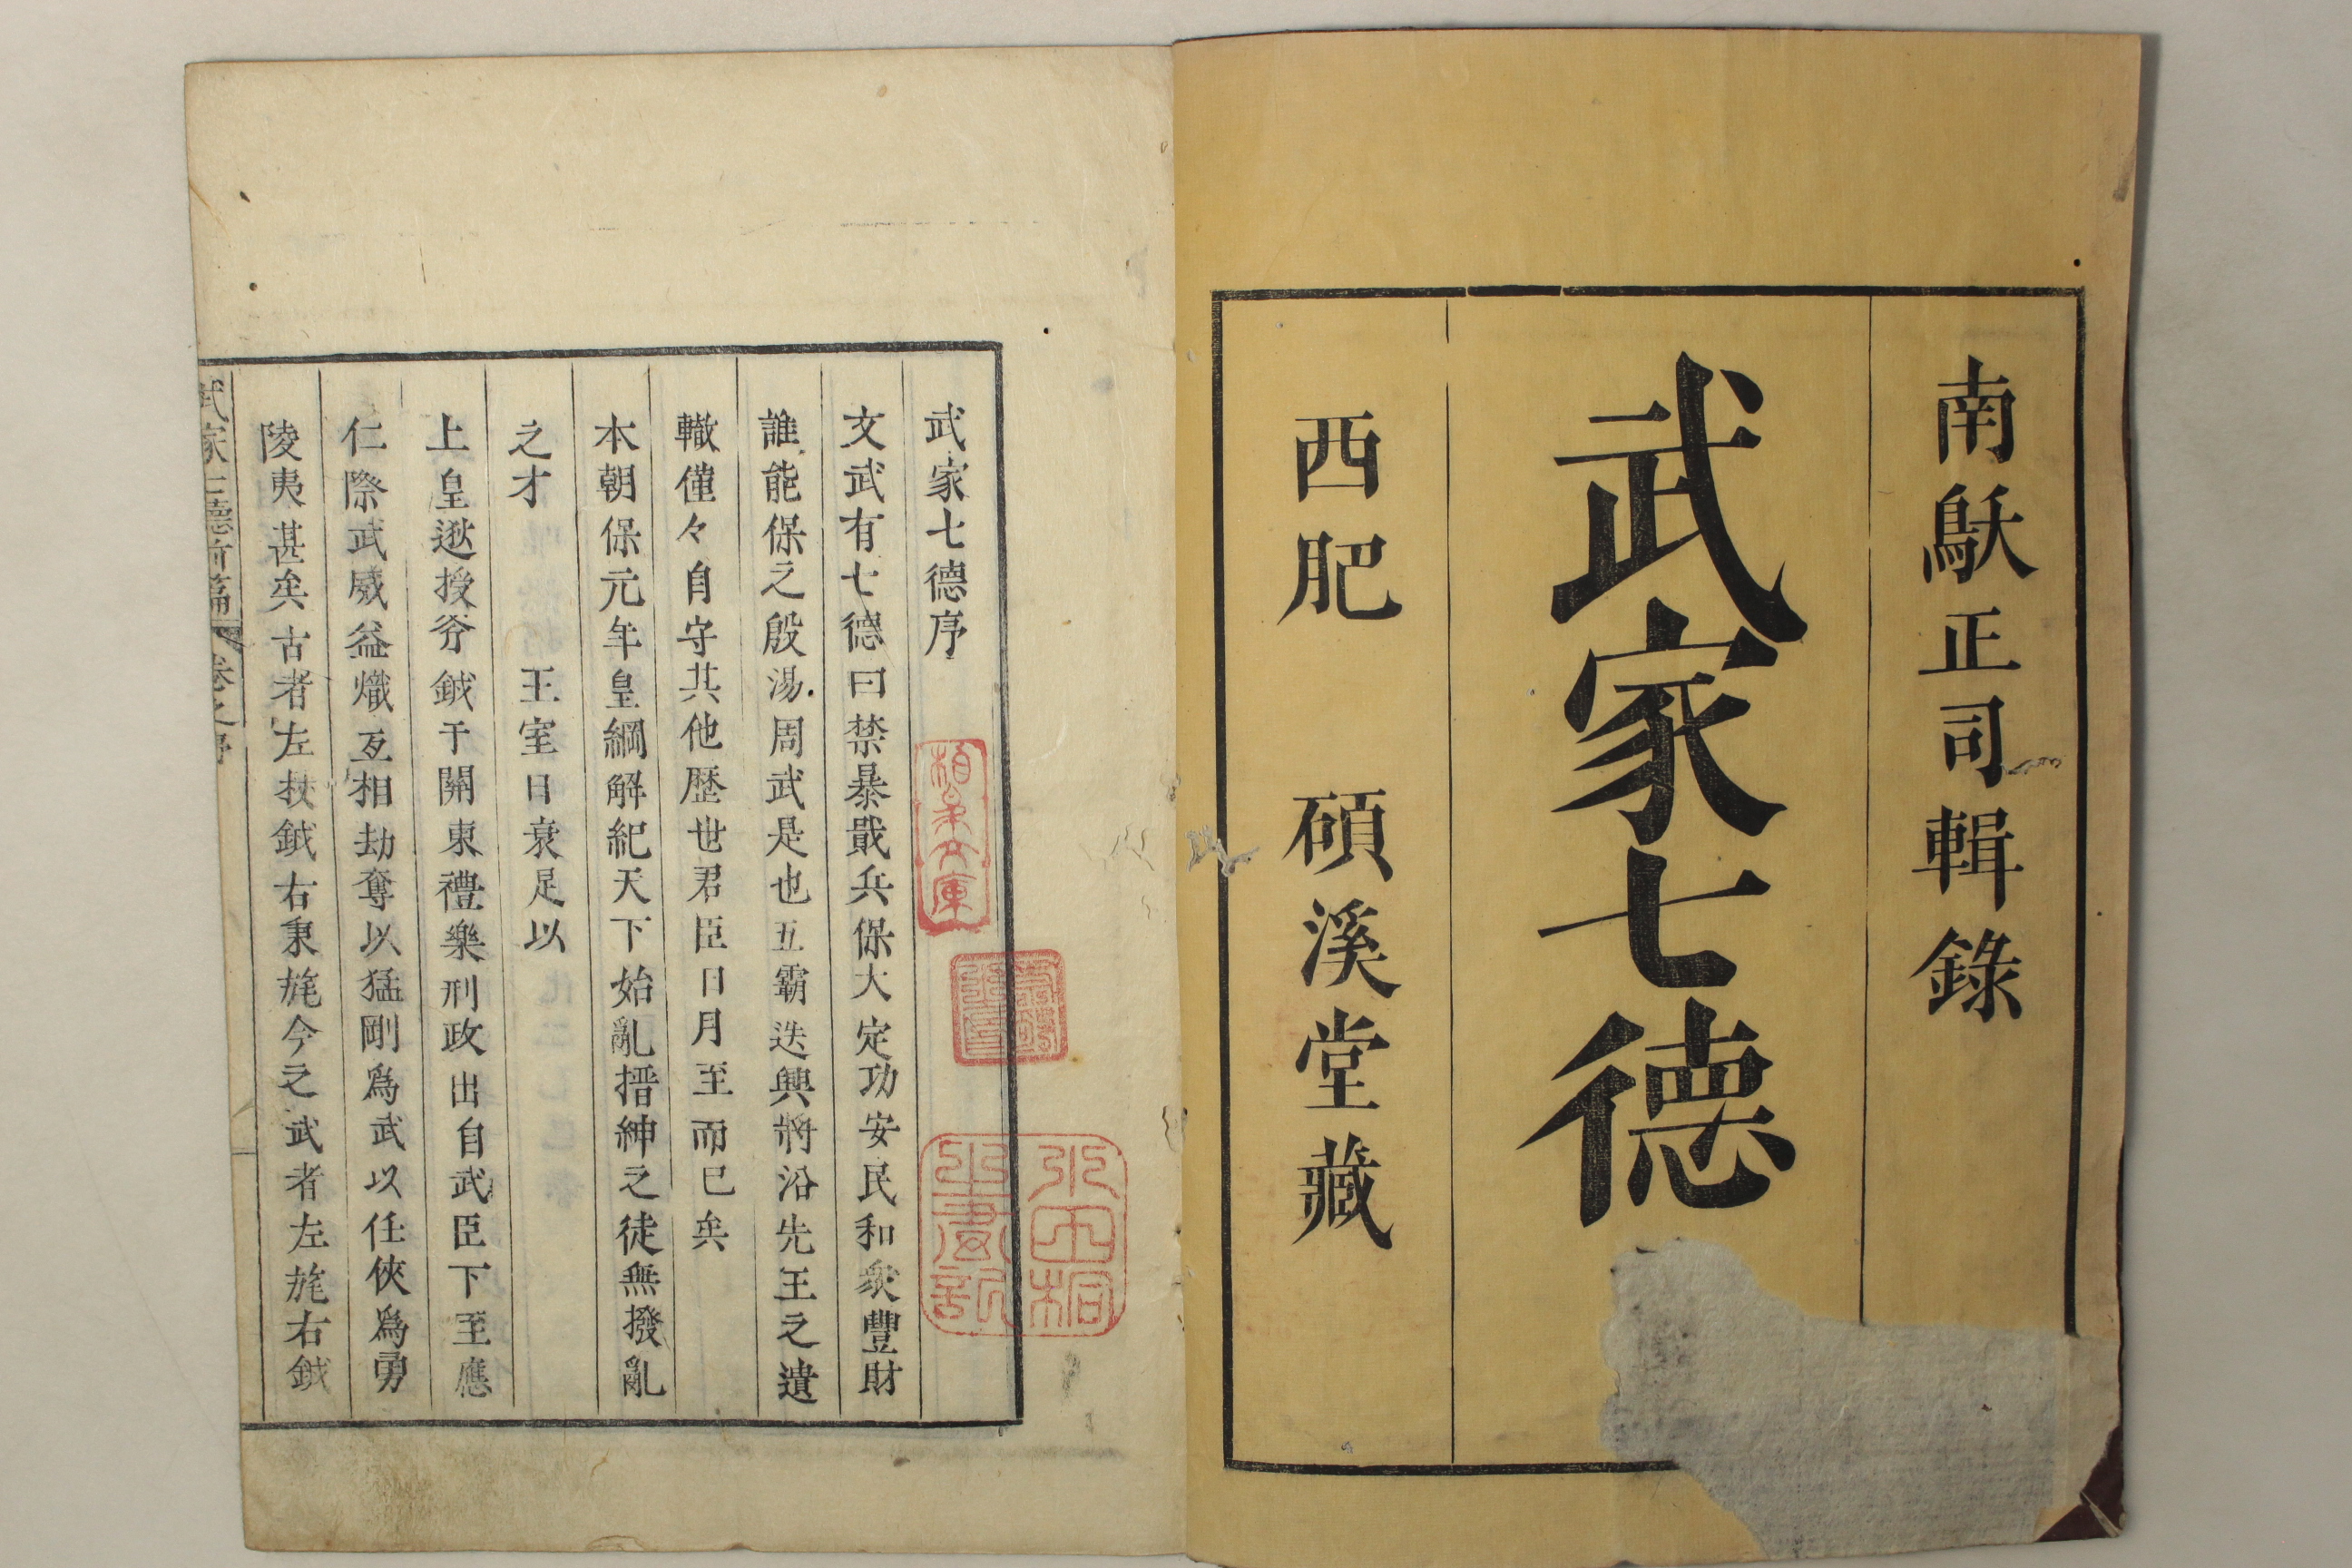 南㝬正司輯錄
武家七德
西肥 碩溪堂藏
武家七德序
文武有七德曰禁暴戢兵保大定功安民和衆豐財
誰能保之殷湯周武是也五霸迭興將沿先王之遺
轍僅々自守其他歷世君臣日月至而已矣
本朝保元年皇綱解紀天下始亂搢紳之徒無撥亂
之才 王室日衰足以
上皇遜授斧鉞于關東禮樂刑政出自武臣下至應
仁際武威益熾互相劫奪以猛剛爲武以任俠爲勇
陵夷甚矣古者左扙鉞右秉旄今之武者左旄右鉞
武家七德前篇 卷之序